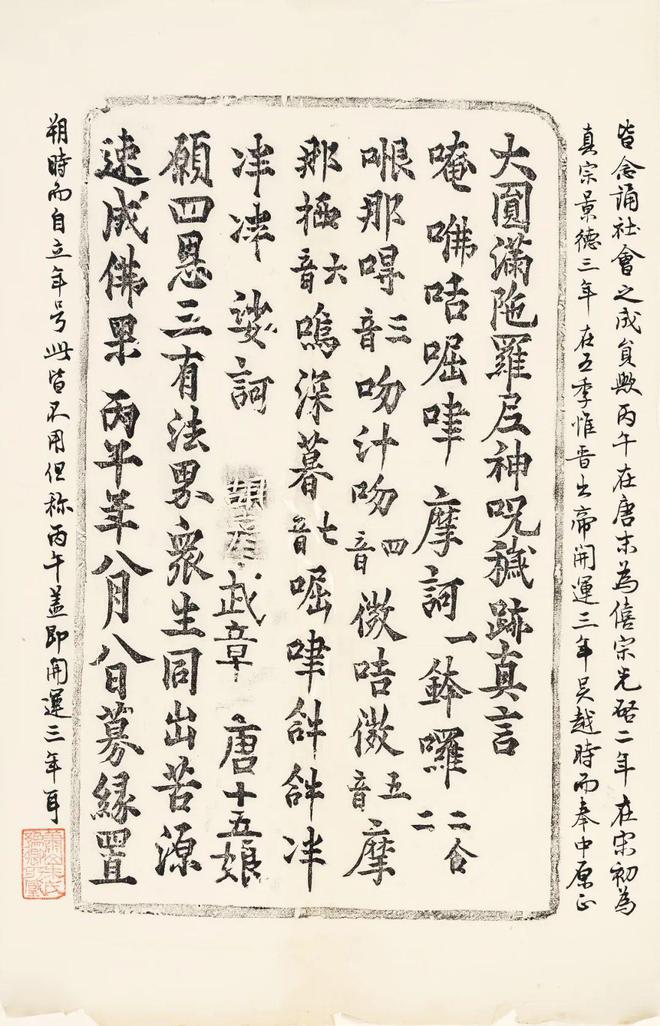 皆念誦社會之成員歟丙午在唐末為僖宗光啓二年在宋初為
真宗景德三年在五季惟晋出帝開運三年吳越時而奉中原正
大圓滿陁羅尼神呪穢跡真言
唵 㖉咶𠼝㖀 摩訶一鉢囉二合二
㖏那㘁音三吻汁吻音四微咭微音五摩
那極音六嗚深暮音七𠼝㖀𤙖𤙖泮
泮泮 娑訶 武章 唐十五娘
願四恩三有法界衆生同出苦源
速成佛果 丙午年八月八日募緣置
朔時而自立年号此皆不用但称丙午蓋即開運三年耳